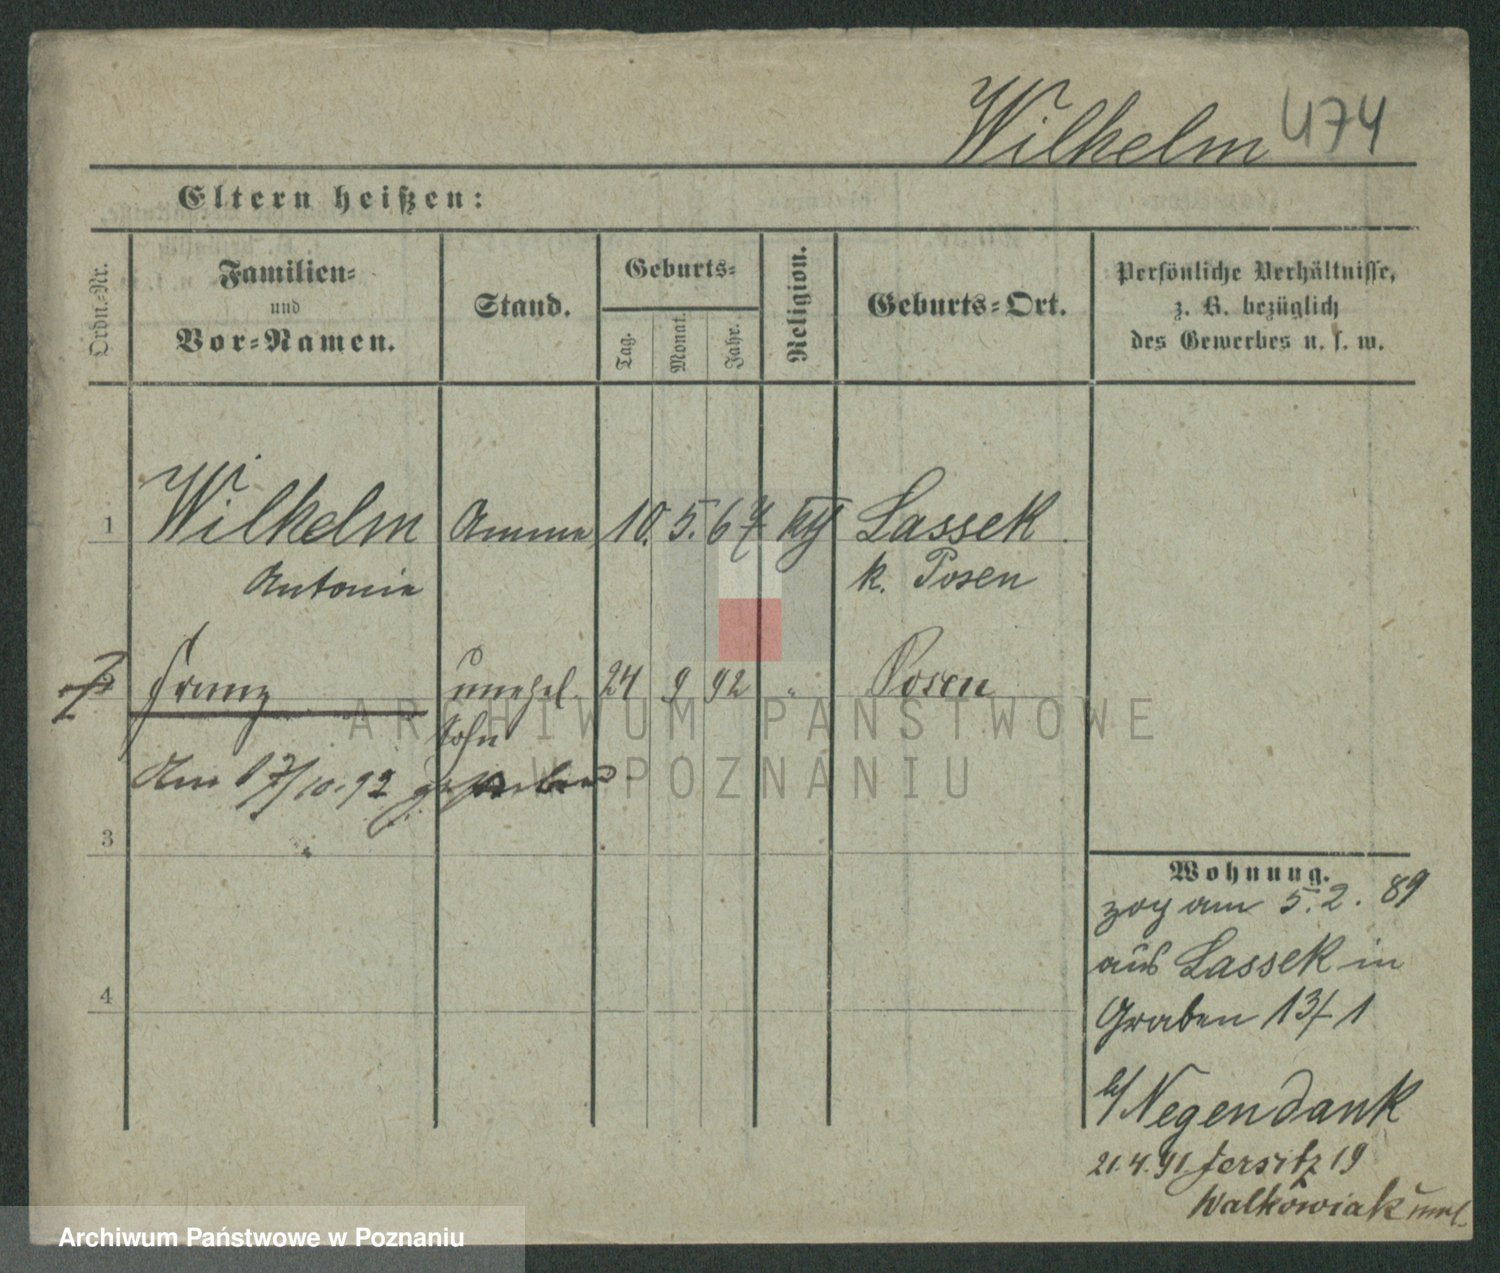 Wilhelm 474
Eltern heißen:
Ordn.-Nr.
Familien-
und
Vor-Namen.
Stand.
Geburts-
Tag.
Monat.
Jahr.
Religion.
Geburts-Ort.
Persönliche Verhältnisse,
z. B. bezüglich
des Gewerbes u. s. w.
1 Wilhelm Amme 10. 5. 67 kth Lassek
Antonie k. Posen
2 Franz unehel. 24 9 92 " Posen
Sohn
Am 17/10.92 gestorben
3
4
Wohnung.
zog am 5.2.89
aus Lassek in
Graben 13/1
b/ Negendank
21.4.91 Jersitz 19
Walkowiak
ARCHIWUM PAŃSTWOWE
W POZNANIU
Archiwum Państwowe w Poznaniu